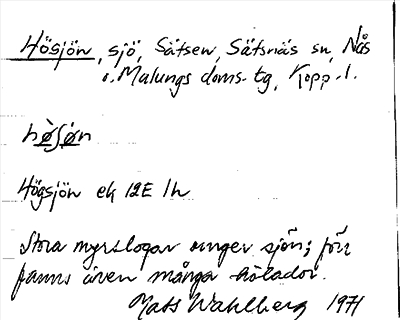 Hösjön, sjö, Sätsen, Sätsnäs sn, Nås
o. Malungs doms. tg, Kopp. l.
hø̀ʃøn
Högsjön ek 12E 1h
Stora myrslogar omger sjön; förr
fanns även många hölador.
Mats Wahlberg 1971